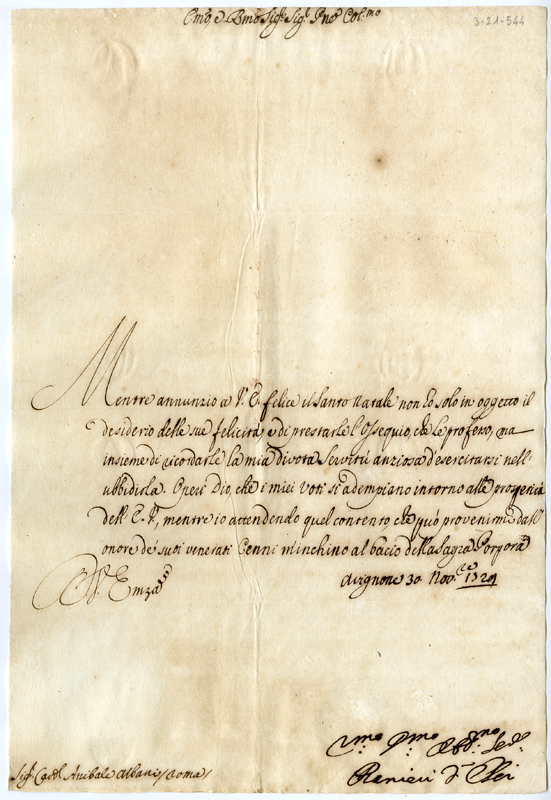 Em.o e R.mo Sig.r Sig.r P.ne Col.mo
3-21-544
Mentre annunzio a V.E. felice il Santo Natale non hò solo in oggetto il
desiderio delle sue felicità, e di prestarle l'Ossequio, che le professo, ma
insieme di ricordarle la mia divota Servitù anziosa d'esercitarsi nell'
ubbidirla. Operi Dio, che i miei voti si adempiano intorno alle prosperità
dell'E.V., mentre io attendendo quel contento, che può provenirmi dall'
onore de' suoi venerati Cenni m'inchino al bacio della Sagra Porpora
Avignone 30. Nov.re
D. V. Emza
Um.o D.mo Obb.mo Ser.
Ranieri d'Elci
Sig.r Card. Anibale Albani / Roma /